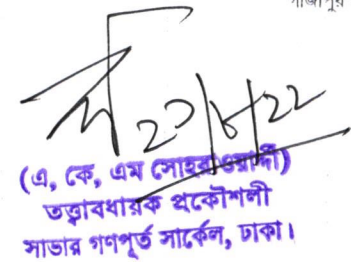 গাজীপুর
২১/৮/২২
(এ, কে, এম সোহরাওয়ার্দী)
তত্ত্বাবধায়ক প্রকৌশলী
সাভার গণপূর্ত সার্কেল, ঢাকা।